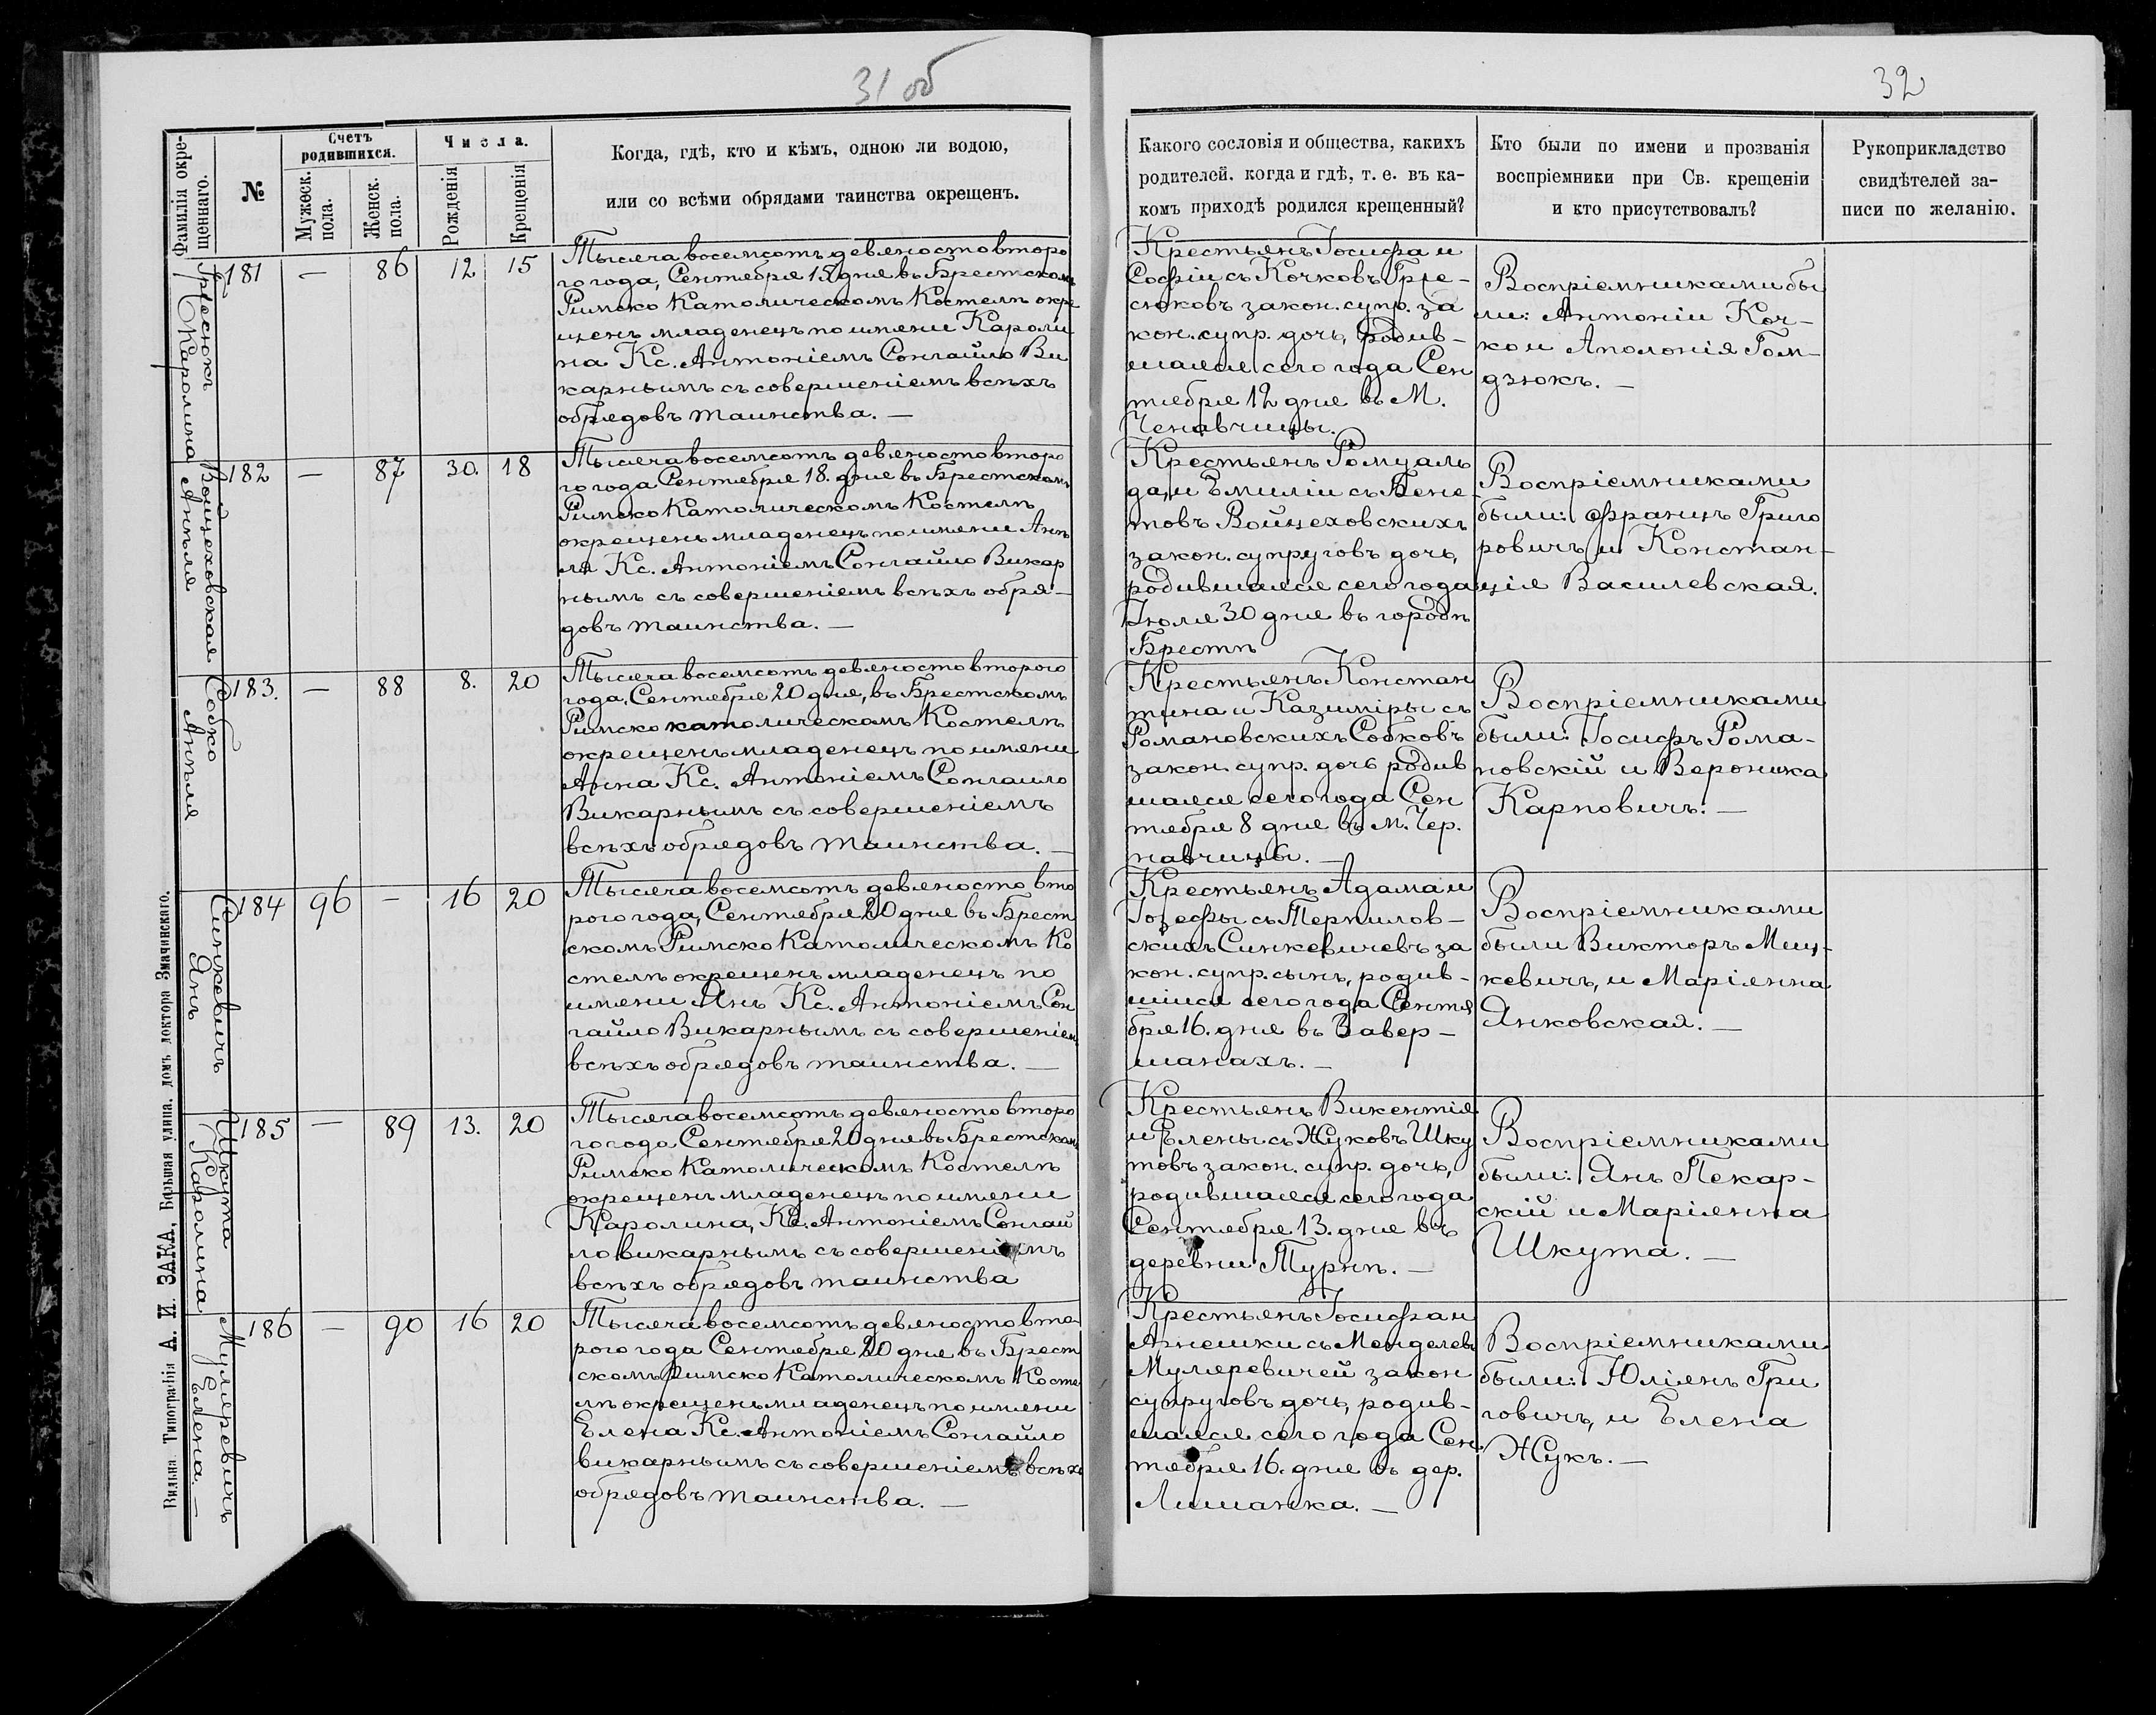 31 об
32
Фамилія окре-
щеннаго.
№
Счетъ
родившихся.
Мужеск.
пола.
Женск.
пола.
Числа.
Рожденія
Крещенія
Когда, гдѣ, кто и кѣмъ, одною ли водою,
или со всѣми обрядами таинства окрещенъ.
Какого сословія и общества, какихъ
родителей, когда и гдѣ, т. е. въ ка-
комъ приходѣ родился крещенный?
Кто были по имени и прозванія
воспріемники при Св. крещеніи
и кто присутствовалъ?
Рукоприкладство
свидѣтелей за-
писи по желанію.
Грисюкъ
Каролина
181 — 86 12 15
Тысяча восемсотъ девяносто второ
го года, Сентября 15 дня въ Брестскомъ
Римско Католическомъ Костелѣ окре
щенъ младенецъ по имени Кароли
на Кс. Антоніемъ Сонгайло Ви
карнымъ съ совершеніемъ всѣхъ
обрядовъ таинства. —
Крестьянъ Іосифа и
Софіи съ Кочковъ Гри-
сюковъ закон. супр. за
кон. супр. дочь, родив-
шаяся сего года Сен
тября 12 дня въ М.
Ченавчицы.
Воспріемниками бы
ли: Антоній Коч-
ко и Аполонія Гом-
дзюкъ. —
Войцеховская
Анѣля
182 — 87 30. 18
Тысяча восемсотъ девяносто второ
го года Сентября 18. дня въ Брестскомъ
Римско Католическомъ Костелѣ
окрещенъ младенецъ по имени Анѣ
ля Кс. Антоніемъ Сонгайло Викар
нымъ съ совершеніемъ всѣхъ обря-
довъ таинства. —
Крестьянъ Ромуаль
да, и Эмиліи съ Бене-
товъ Войцеховскихъ
закон. супруговъ дочь,
родившаяся сего года
Іюля 30 дня въ городѣ
Брестѣ
Воспріемниками
были: Францъ Григо
ровичъ и Констан-
ція Василевская.
Собко
Анѣля
183. — 88 8. 20
Тысяча восемсотъ девяносто второго
года, Сентября 20 дня, въ Брестскомъ
Римско католическомъ Костелѣ
окрещенъ младенецъ по имени
Анна Кс. Антоніемъ Сонгайло
Викарнымъ съ совершеніемъ
всѣхъ обрядовъ таинства. —
Крестьянъ Констан
тина и Казиміры съ
Романовскихъ Собковъ
закон. супр. дочь родив
шаяся сего года Сен
тября 8 дня въ м. Чер.
навчицы. —
Воспріемниками
были: Іосифъ Рома-
новскій и Вероника
Карповичъ. —
Синкевичъ
Янъ
184 96 — 16 20
Тысяча восемсотъ девяносто вто
рого года, Сентября 20 дня въ Брест
скомъ Римско Католическомъ Ко
стелѣ окрещенъ младенецъ по
имени Янъ Кс. Антоніемъ Сон
гайло Викарнымъ съ совершеніемъ
всѣхъ обрядовъ таинства. —
Крестьянъ Адама и
Іозефы съ Терпилов-
скихъ Синкевичевъ за
кон. супр. сынъ, родив-
шійся сего года Сентя
бря 16. дня въ Завер-
шанахъ. —
Воспріемниками
были Викторъ Миц-
кевичъ, и Маріянна
Янковская. —
Шкута
Каролина
185 — 89 13. 20
Тысяча восемсотъ девяносто второ
го года Сентября 20 дня въ Брестскомъ
Римско Католическомъ Костелѣ
окрещенъ младенецъ по имени
Каролина, Кс. Антоніемъ Сонгай
ло викарнымъ съ совершеніемъ
всѣхъ обрядовъ таинства
Крестьянъ Викентія
и Елены съ Жуковъ Шку
товъ закон. супр. дочь,
родившаяся сего года
Сентября 13. дня въ
деревни Турнѣ. —
Воспріемниками
были: Янъ Пекар-
скій и Маріянна
Шкута. —
Муляревичъ
Елена. —
186 — 90 16 20
Тысяча восемсотъ девяносто вто-
рого года Сентября 20 дня въ Брест
скомъ Римско Католическомъ Косте
лѣ окрещенъ младенецъ по имени
Елена Кс. Антоніемъ Сонгайло
викарнымъ съ совершеніемъ всѣхъ
обрядовъ таинства. —
Крестьянъ Іосифа и
Агнешки съ Менделевъ
Муляревичей закон
супруговъ дочь, родив-
шаяся сего года Сен
тября 16. дня въ дер.
Лишанка. —
Воспріемниками
были: Юліянъ Гри
говичъ, и Елена
Жукъ. —
Вильна Типографія А. И. ЗАКА, Большая улица, домъ доктора Змачинскаго.